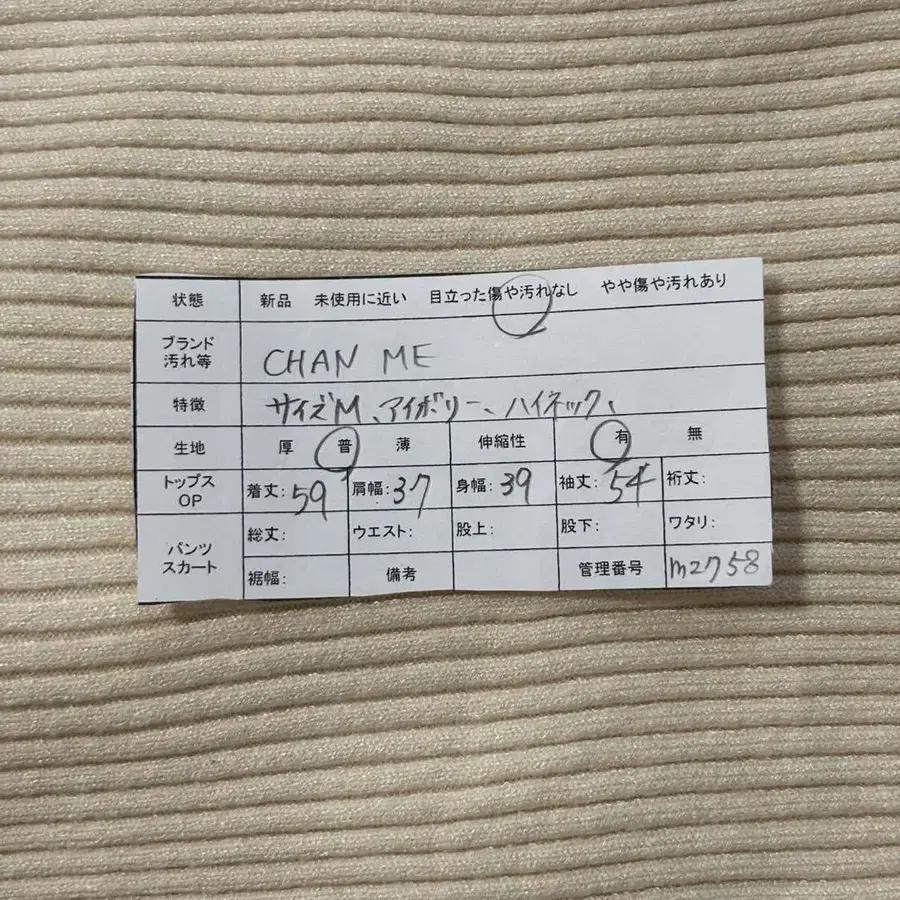 状態 新品 未使用に近い 目立った傷や汚れなし やや傷や汚れあり
ブランド
汚れ等 CHAN ME
特徴 サイズM、アイボリー、ハイネック、
生地 厚 普 薄 伸縮性 有 無
トップス
OP 着丈:59 肩幅:37 身幅:39 袖丈:54 裄丈:
パンツ
スカート 総丈: ウエスト: 股上: 股下: ワタリ:
裾幅: 備考 管理番号 m2758